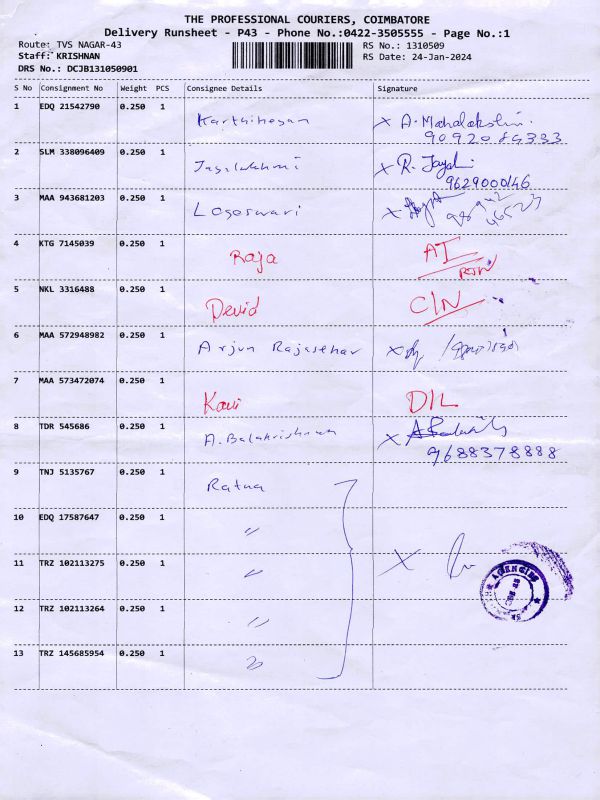 THE PROFESSIONAL COURIERS, COIMBATORE
Delivery Runsheet - P43 - Phone No.:0422-3505555 - Page No.:1
Route: TVS NAGAR-43 RS No.: 1310509
Staff: KRISHNAN RS Date: 24-Jan-2024
DRS No.: DCJB131050901
S No Consignment No Weight PCS Consignee Details Signature
1 EDQ 21542790 0.250 1 Karthikesan x A. Mahalakshmi
9092084333
2 SLM 338096409 0.250 1 Jayalakshmi x R. Jayal
9629000146
3 MAA 943681203 0.250 1 Logeswari x
4 KTG 7145039 0.250 1 Raja AI
RTN
5 NKL 3316488 0.250 1 Devid C/N
6 MAA 572948982 0.250 1 Arjun Rajasehar x
7 MAA 573472074 0.250 1 Kavi D/L
8 TDR 545686 0.250 1 A. Balakrishnan x
9688378888
9 TNJ 5135767 0.250 1 Ratna
10 EDQ 17587647 0.250 1 "
11 TRZ 102113275 0.250 1 " x
12 TRZ 102113264 0.250 1 "
13 TRZ 145685954 0.250 1 "
AGENCIES